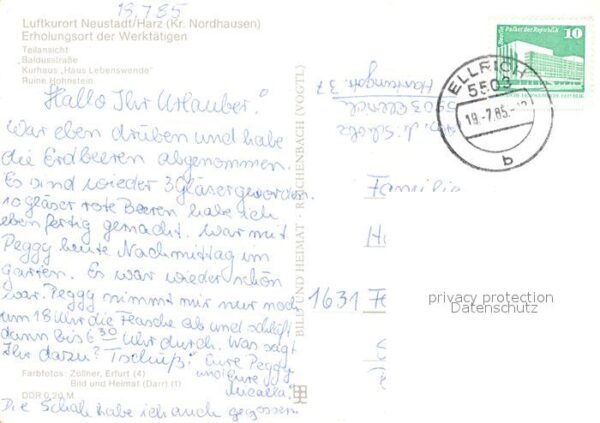 19.7.85
Luftkurort Neustadt/Harz (Kr. Nordhausen)
Erholungsort der Werktätigen
Teilansicht
Baldusstraße
Kurhaus „Haus Lebenswende"
Ruine Hohnstein
Hallo Ihr Urlauber!
War eben drüben und habe
die Erdbeeren abgenommen.
Es sind wieder 3 Gläser geworden.
10 gläser rote Beeren habe ich
eben fertig gemacht. War mit
Peggy heute Nachmittag im
garten. Es war wieder schön
war. Peggy nimmt mir nur noch
um 18 Uhr die Flasche ab und schläft
dann bis 6 30 Uhr durch. Was sagt
Ihr dazu? Tschüß! Eure Peggy
und Eure
Farbfotos: Zöllner, Erfurt (4)
Bild und Heimat (Darr) (1)
DDR 0,20 M
Die Schale habe ich auch gegossen
BILD UND HEIMAT · REICHENBACH (VOGTL)
10
Palast der Republik
ELLRICH
5503
19.7.85
b
37
Familie
H
1631
privacy protection
Datenschutz